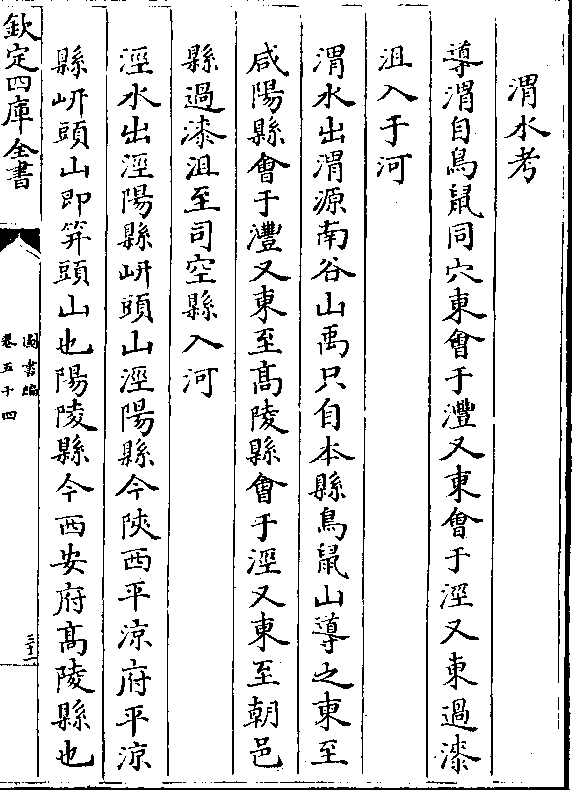 渭水考
導渭自鳥鼠同穴東㑹于灃又東㑹于涇又東過漆
沮入于河
渭水出渭源南谷山禹只自本縣鳥鼠山導之東至
咸陽縣㑹于灃又東至髙陵縣㑹于涇又東至朝邑
縣過漆沮至司空縣入河
涇水出涇陽縣岍頭山涇陽縣今陜西平涼府平涼
縣岍頭山即笄頭山也陽陵縣今西安府髙陵縣也
欽定四庫全書
圖書編
卷五十四